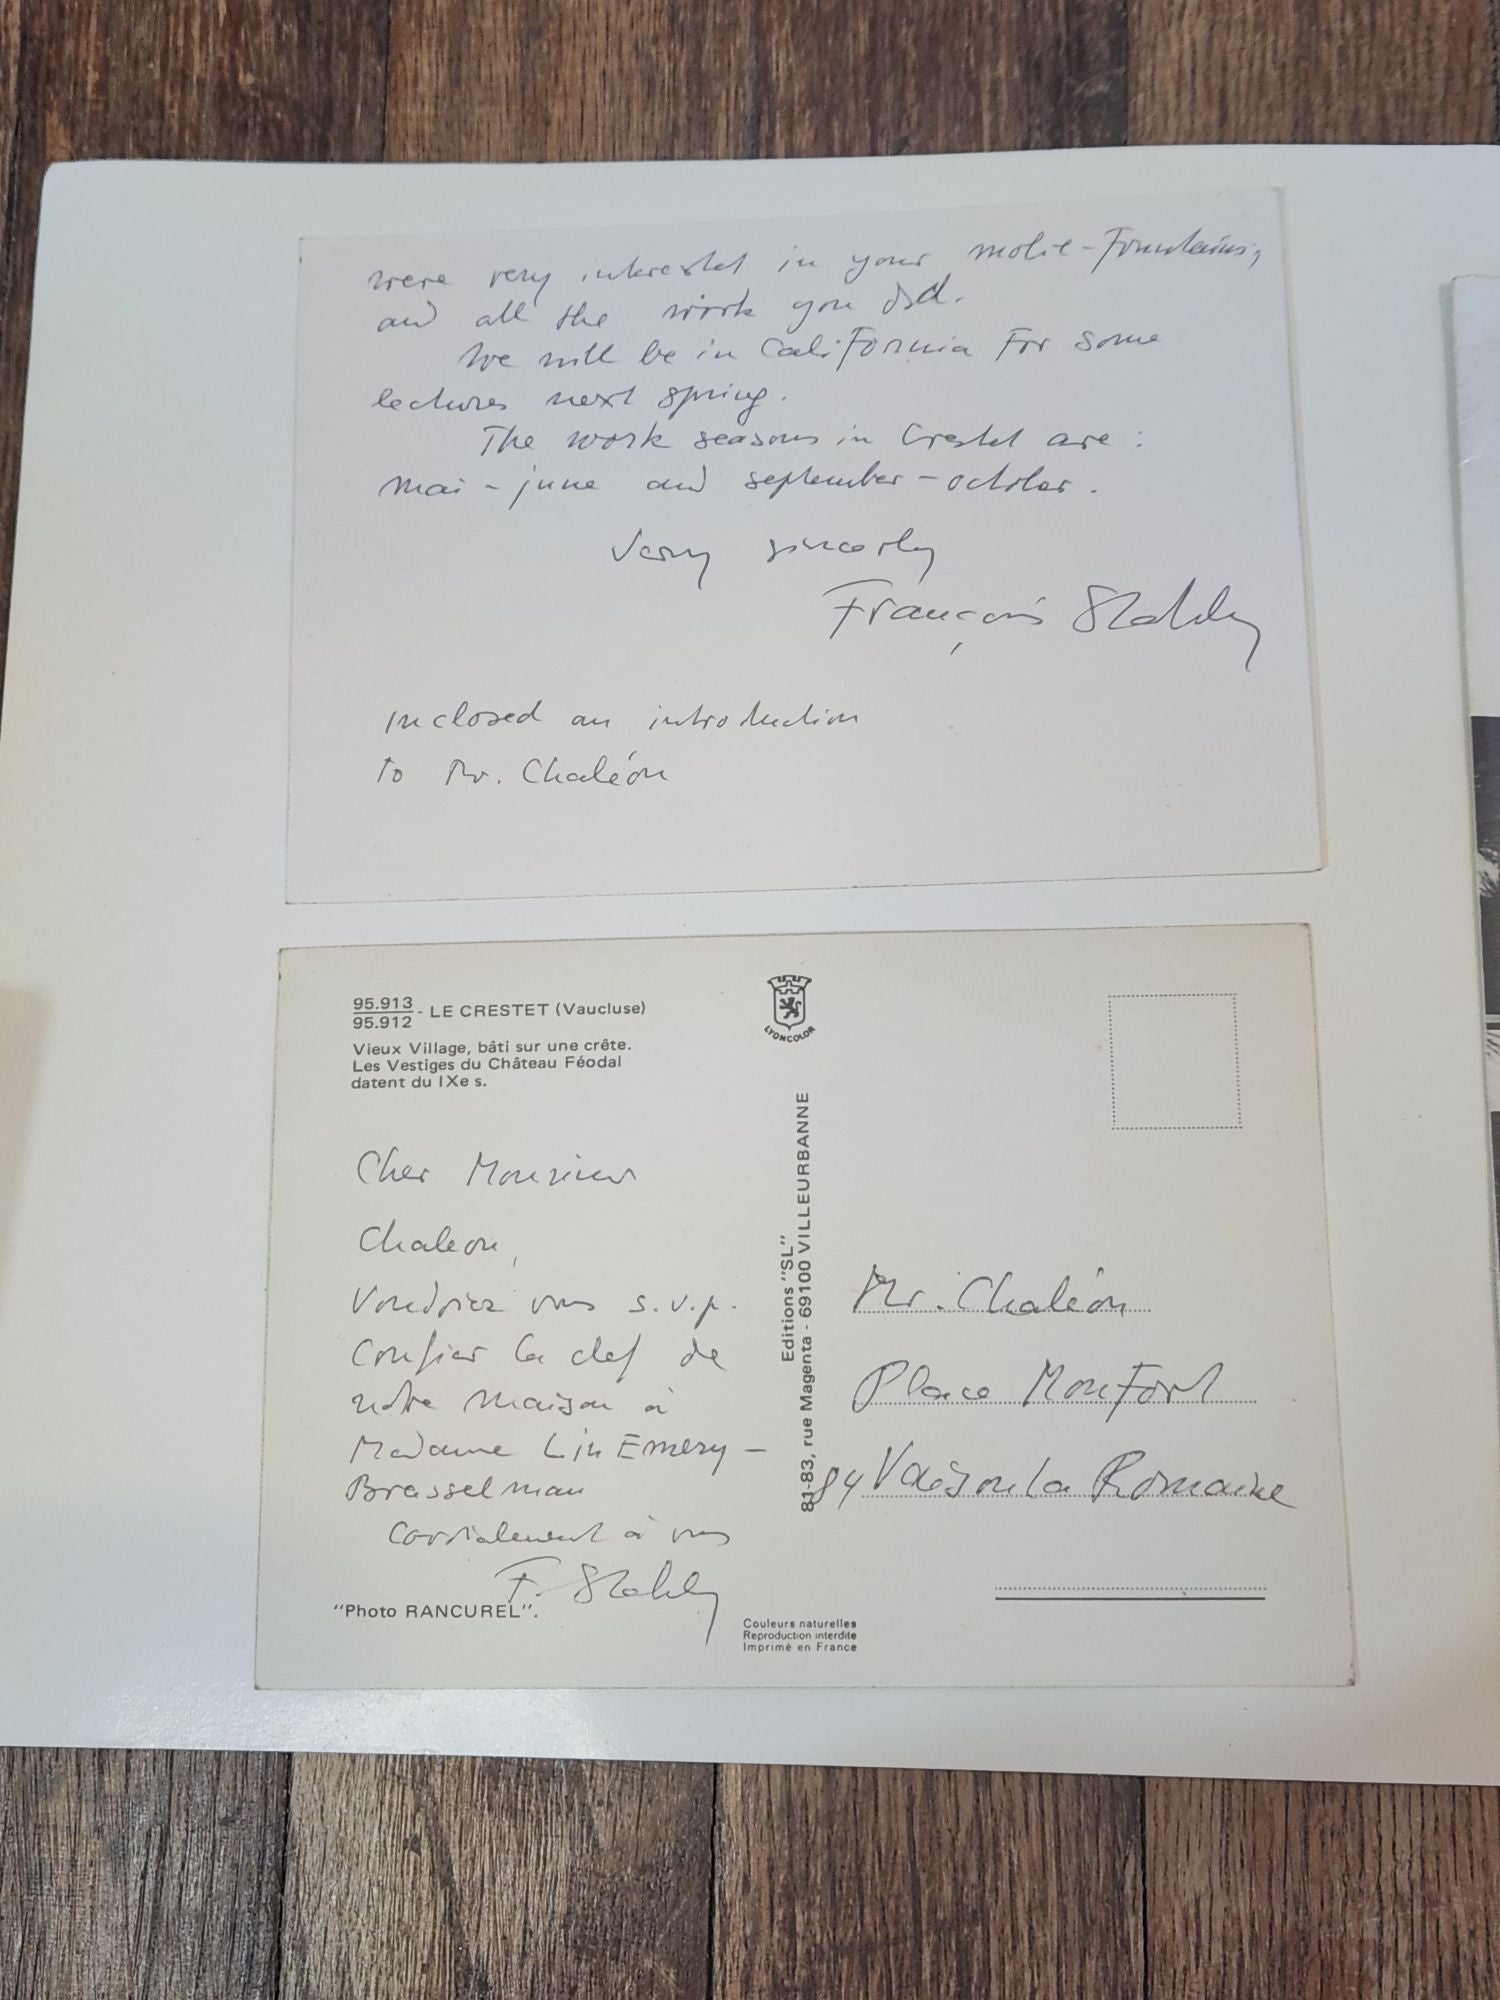 were very interestet in your mobil-Fountains,
and all the work you did.
We will be in California For some
lectures next spring.
The work seasons in Crestet are :
mai - june and september - october.
Very sincerly
François Stahly
inclosed an introduction
to Mr. Chaléon
95.913
95.912 - LE CRESTET (Vaucluse)
Vieux Village, bâti sur une crête.
Les Vestiges du Château Féodal
datent du IXe s.
Cher Monsieur
Chaleon,
Voudriez vous s.v.p.
confier la clef de
notre maison à
Madame Lin Emery -
Brasselman
Cordialement à vous
F. Stahly
"Photo RANCUREL".
LYONCOLOR
Editions "SL"
81-83, rue Magenta - 69100 VILLEURBANNE
Couleurs naturelles
Reproduction interdite
Imprimé en France
Mr. Chaléon
Place MonFort
84 Vaison la Romaine